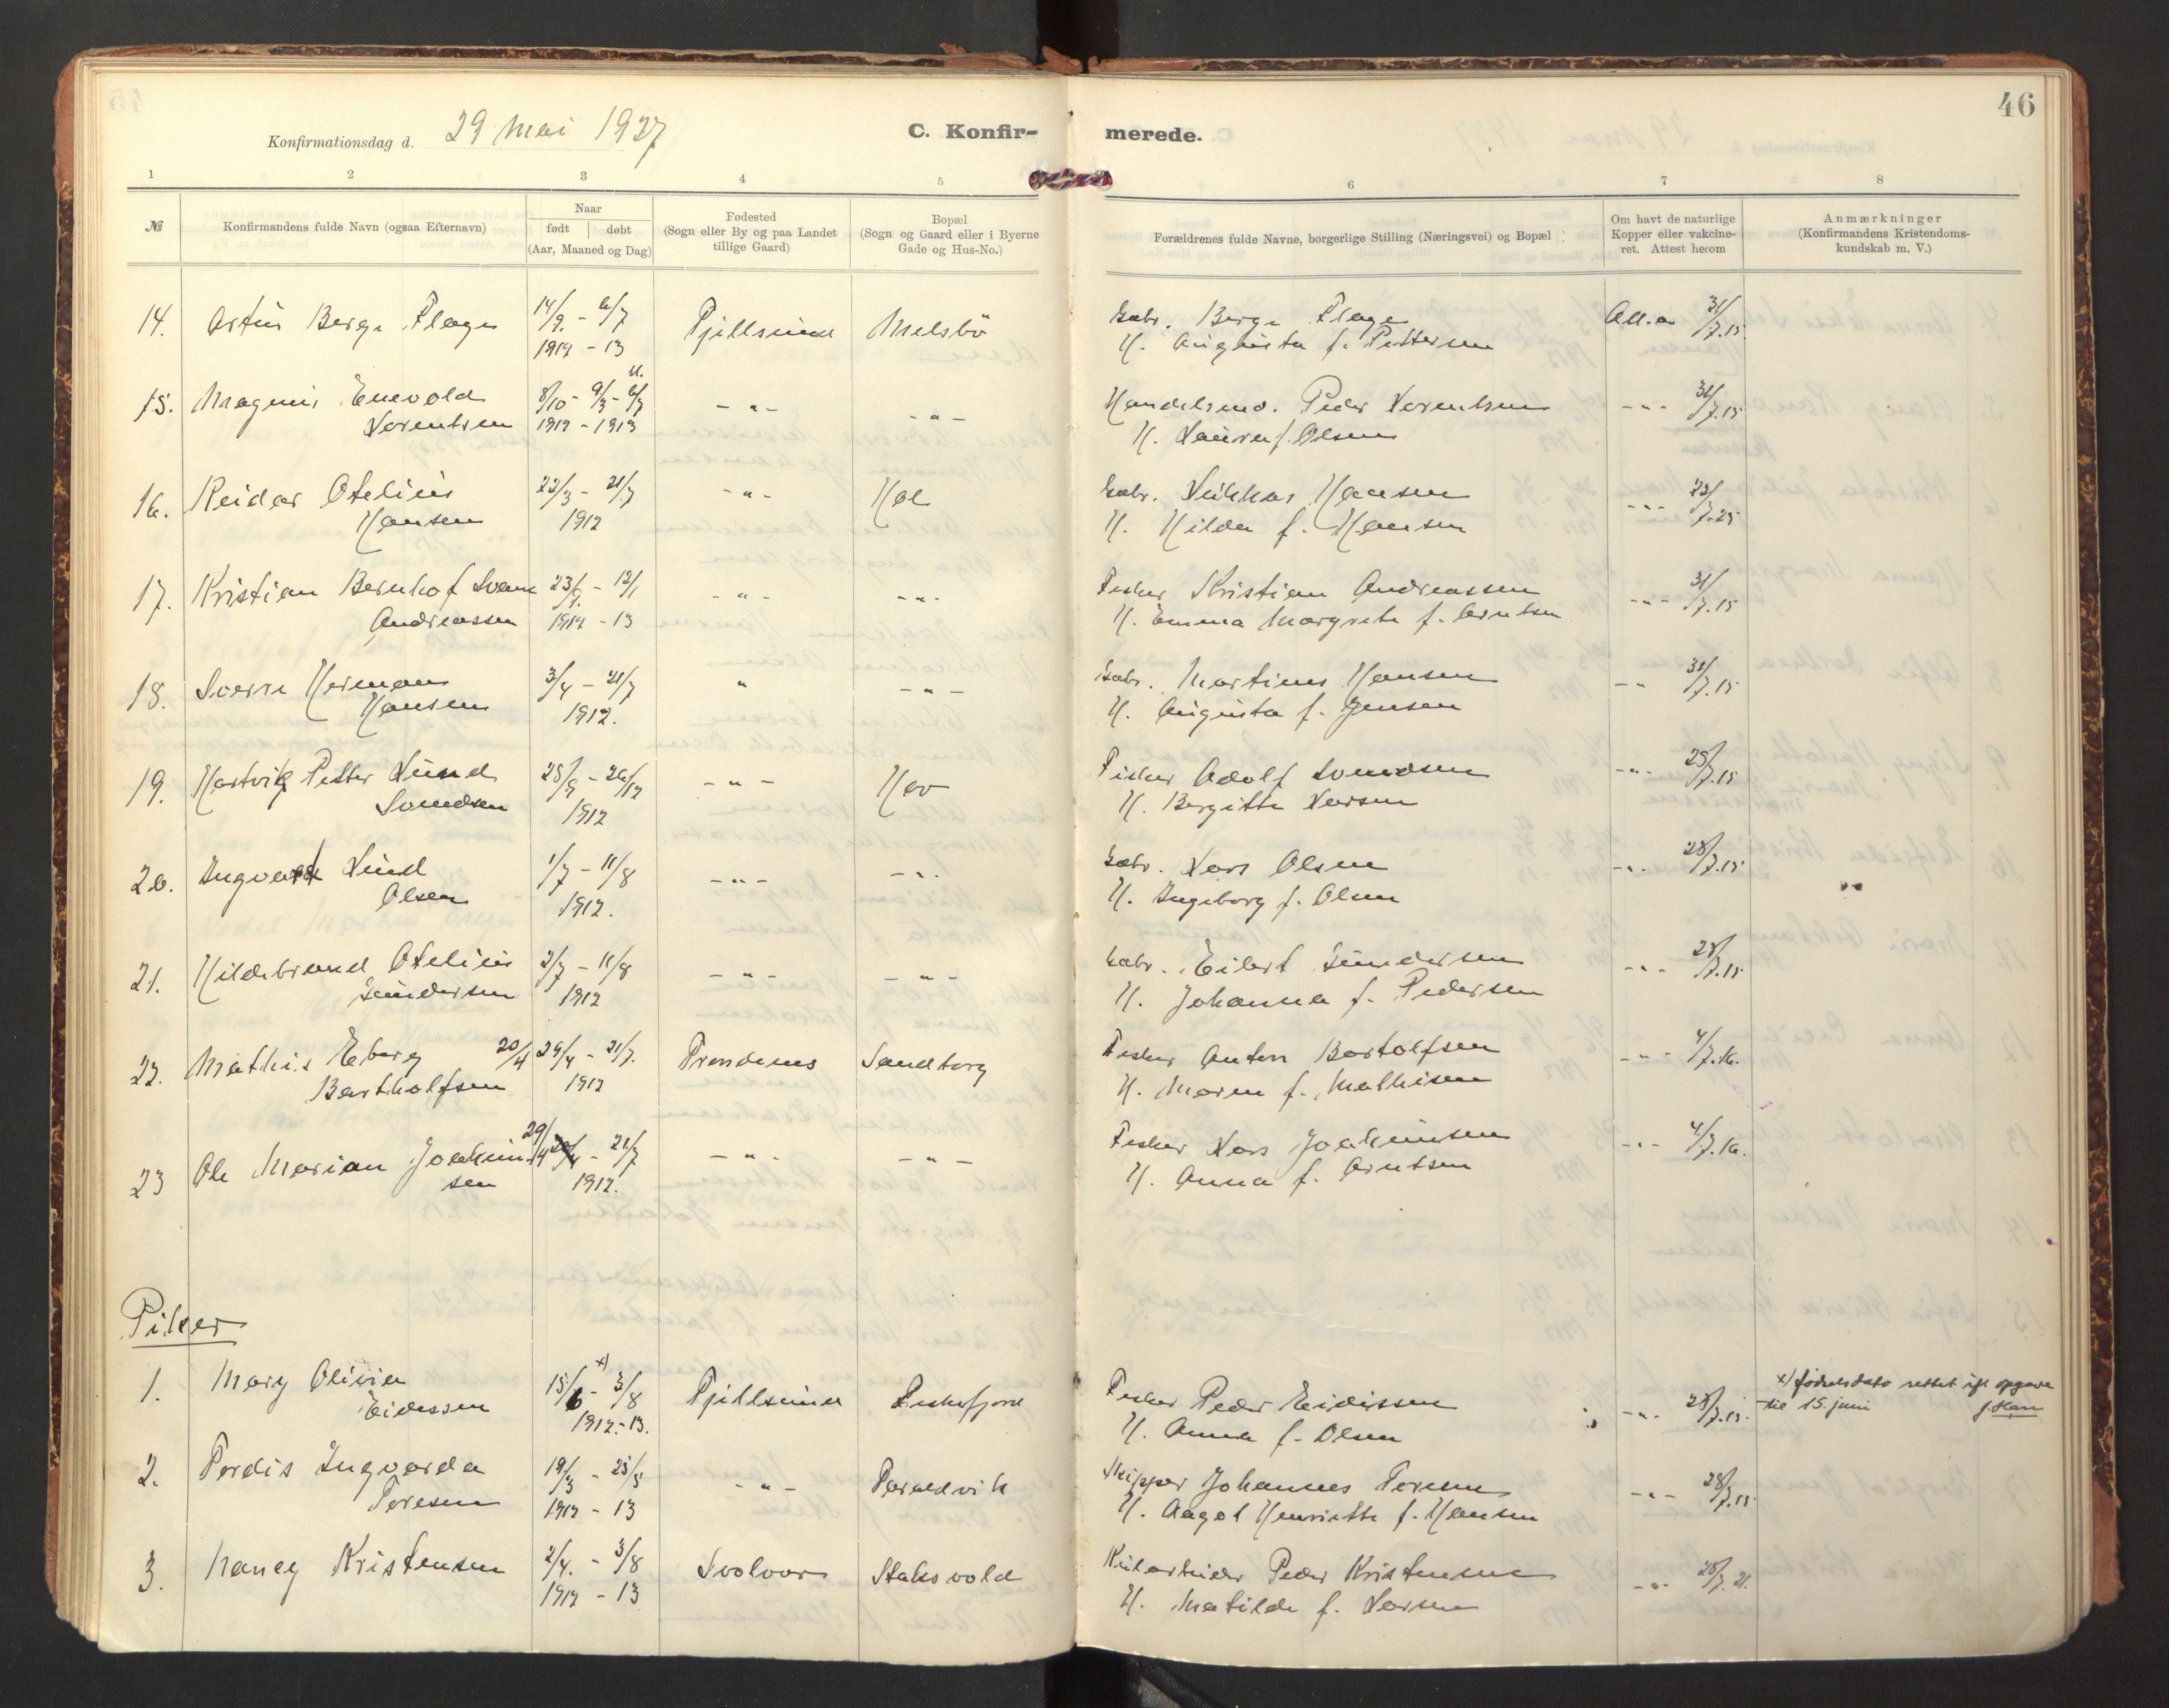 46
Konfirmationsdag d. 29 mai 1927
C. Konfir-
merede.
1 2 3 4 5 6 7 8
№
Konfirmandens fulde Navn (ogsaa Efternavn)
Naar
født døbt
(Aar, Maaned og Dag)
Fødested
(Sogn eller By og paa Landet
tillige Gaard)
Bopæl
(Sogn og Gaard eller i Byerne
Gade og Hus-No.)
Forældrenes fulde Navne, borgerlige Stilling (Næringsvei) og Bopæl
Om havt de naturlige
Kopper eller vakcine-
ret. Attest herom
Anmærkninger
(Konfirmandens Kristendoms-
kundskab m. V.)
14. Artur Berge Plage 14/9. - 6/7 Tjeldsund Melsbö Gabr. Berge Plage Att. a 31/7.15.
1912 - 13 H. Augusta f. Pettersen
15. Magnus Enevold 8/10 - 9/3 - 6/7 - " - - " - Handelsmd. Peder Lorentsen - " - 31/7.15
Lorentsen 1912 - 1913 H. Laura f. Olsen
16. Reidar Otelius 22/3 - 21/7 - " - Hol Gabr. Hansen - " -
Hansen 1912 H. Hilda f. Hansen
17. Kristian Bernhof Svane 23/9. - 12/1 - " - - " - Fisker Kristian Andreassen - " - 31/7.15
Andreassen 1912 - 13 H. Emma Margrete f. Arntsen
18. Sverre Herman 3/4 - 21/7 " - " - Gabr. Martinus Hansen - " 31/7.15
Hansen 1912. H. Augusta f. Jensen
19. Hartvig Petter Lund 28/9 - 26/12 - " - Hov Fisker Adolf Svendsen - " - 28/7.15
Svendsen 1912 H. Bergitte Larsen
20. Ingvart Lund 1/7 - 11/8 - " - - " - Gabr. Lars Olsen - " - 28/7.15
Olsen 1912. H. Ingeborg f. Olsen
21. Hildebrand Otelius 2/7 - 11/8 - " - - " - Gabr. Eilert Gundersen - " - 28/7.15
Gundersen 1912 H. Johanna f. Pedersen
22. Mathis Eberg 20/4 29/4 - 21/7. Trondenes Sandtorg Fisker Anton Bartolfsen - " - 4/7.16.
Bartholfsen 1912 H. Maren f. Mathisen
23 Ole Marian Joakim- 29/4 20/4 - 21/7 - " - - " - Fisker Lars Joakimsen - " - 4/7.16.
sen 1912. H. Anna f. Arntsen
Piker
1. Mary Olivia 15/6 x) - 3/8 Tjeldsund Fiskefjord Fisker Peder Eidissen - " - 28/7.15. x) fødselsdato rettet ifl opgave
Eidessen 1912 - 13. H. Anna f. Olsen til 15. juni
2. Tordis Ingvarda 19/3 - 25/5 - " - Taraldvik Skipper Johannes Toresen - " - 28/7.15
Toresen 1912 - 13 H. Aagot Henriette f. Hansen
3. Nancy Kristensen 2/4. - 3/8 Svolvær Staksvold Peder Kristensen - " - 28/7.21.
1912 - 13 H. Matilde f. Larsen